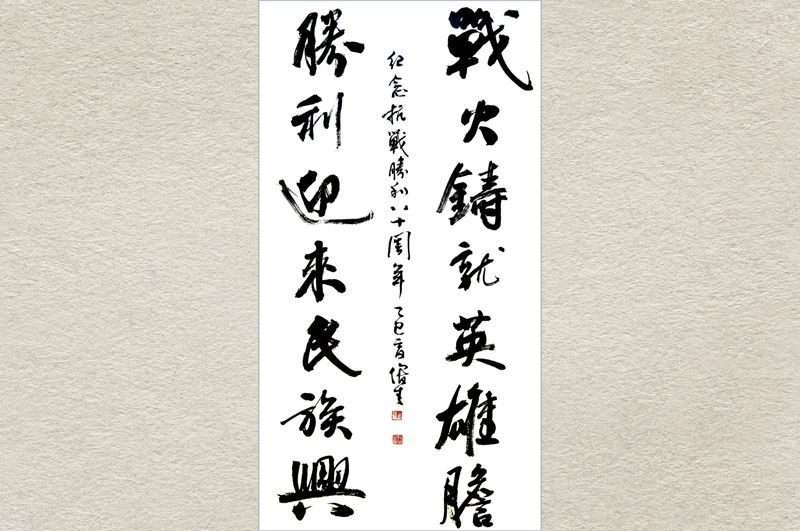 戰火鑄就英雄膽
紀念抗戰勝利八十周年 乙巳夏俊生
勝利迎來民族興